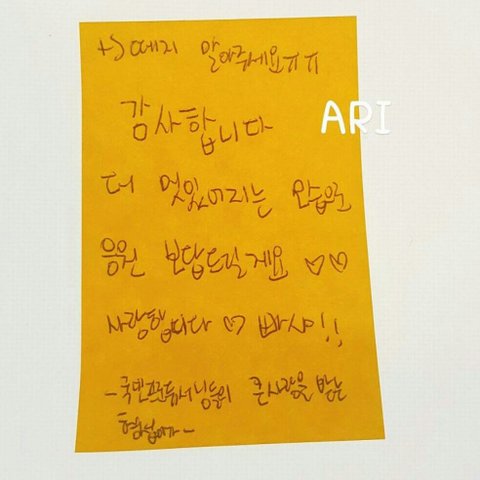 알아주세요ㅠㅠ
감사합니다
ARI
더 멋있어지는 모습으로
응원 보답드릴게요 ♡♡
사랑합니다 ♡ 빠샤!!
-국민프로듀서님들의 큰사랑을 받는
형섭이가-